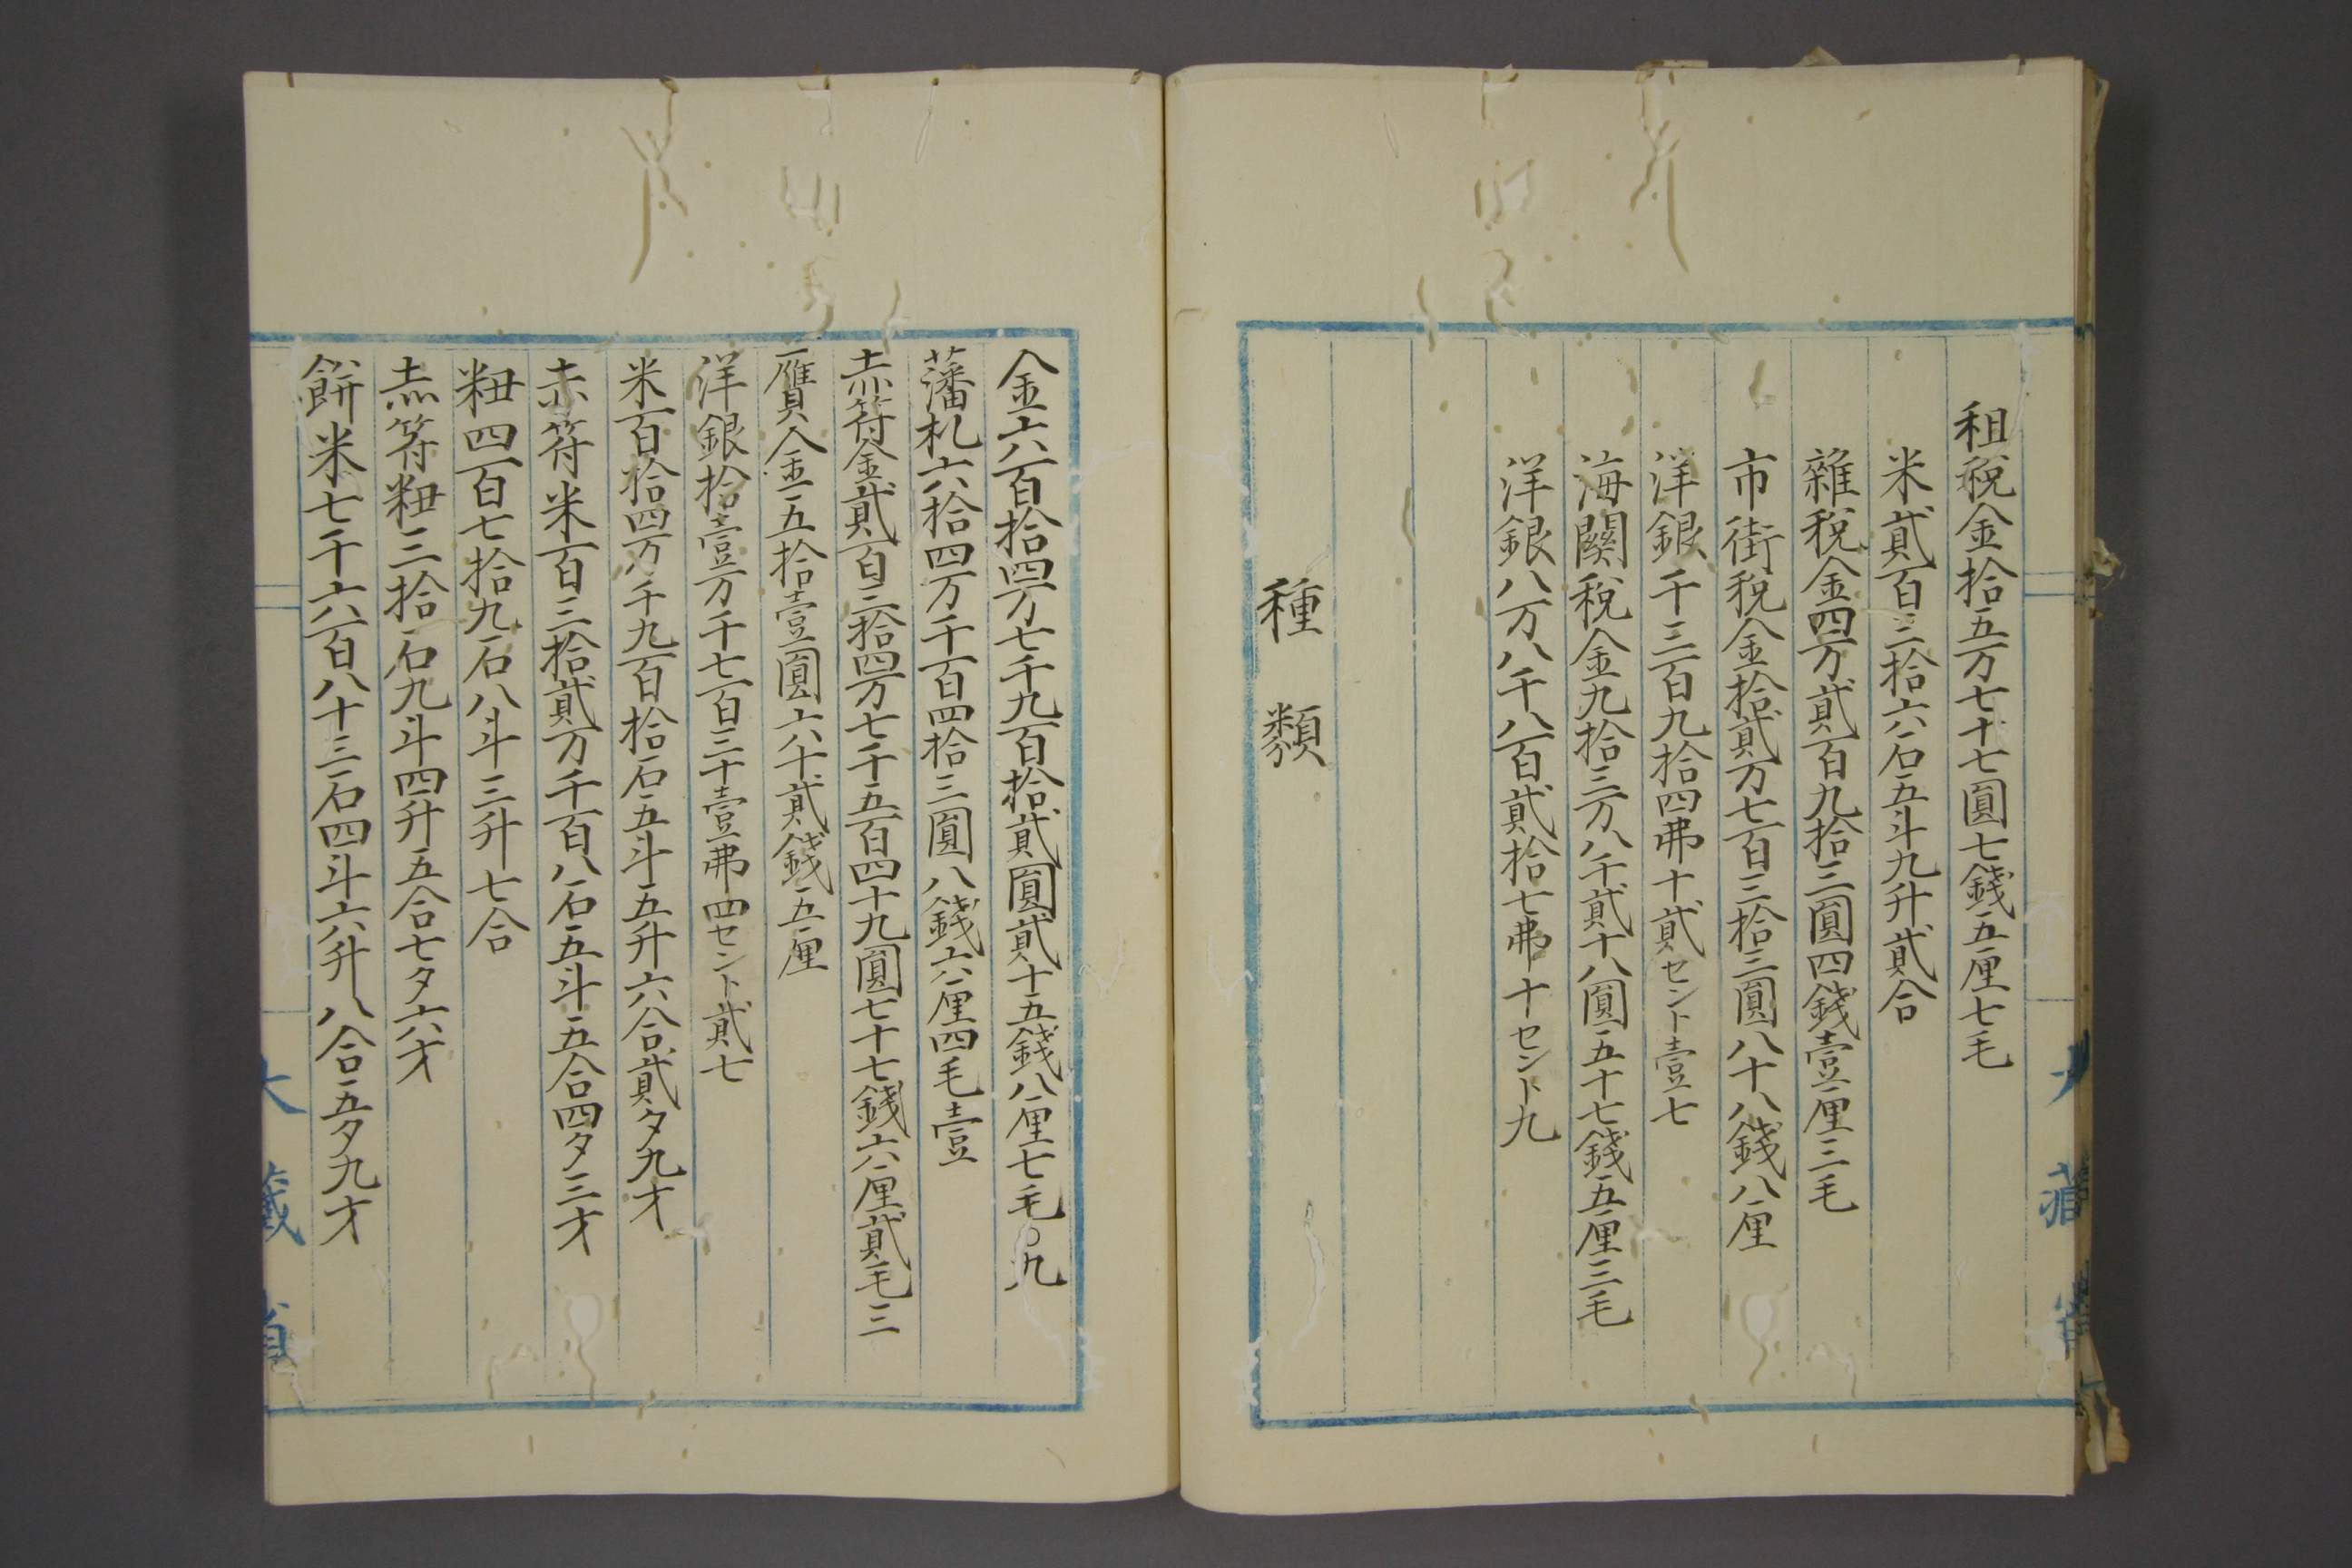 租税金拾五万七十七圓七錢五厘七毛
米貳百三拾六石五斗九升貳合
雜税金四万貳百九拾三圓四錢壹厘三毛
市街税金拾貳万七百三拾三圓八十八錢八厘
洋銀千三百九拾四弗十貳セント壹七
海關税金九拾三万八千貳十八圓五十七錢五厘三毛
洋銀八万八千八百貳拾七弗十セント九
種類
金六百拾四万七千九百拾貳圓貳十五錢八厘七毛〇九
藩札六拾四万千百四拾三圓八錢六厘四毛壹
赤符金貳百三拾四万七千五百四十九圓七十七錢六厘貳毛三
贋金五拾壹圓六十貳錢五厘
洋銀拾壹万千七百三十壹弗四セント貳七
米百拾四万千九百拾石五斗五升六合貳夕九才
赤符米百三拾貳万千百八石五斗五合四夕三才
籾四百七拾九石八斗三升七合
赤符籾三拾石九斗四升五合七夕六才
餅米七千六百八十三石四斗六升八合五夕九才
大藏省